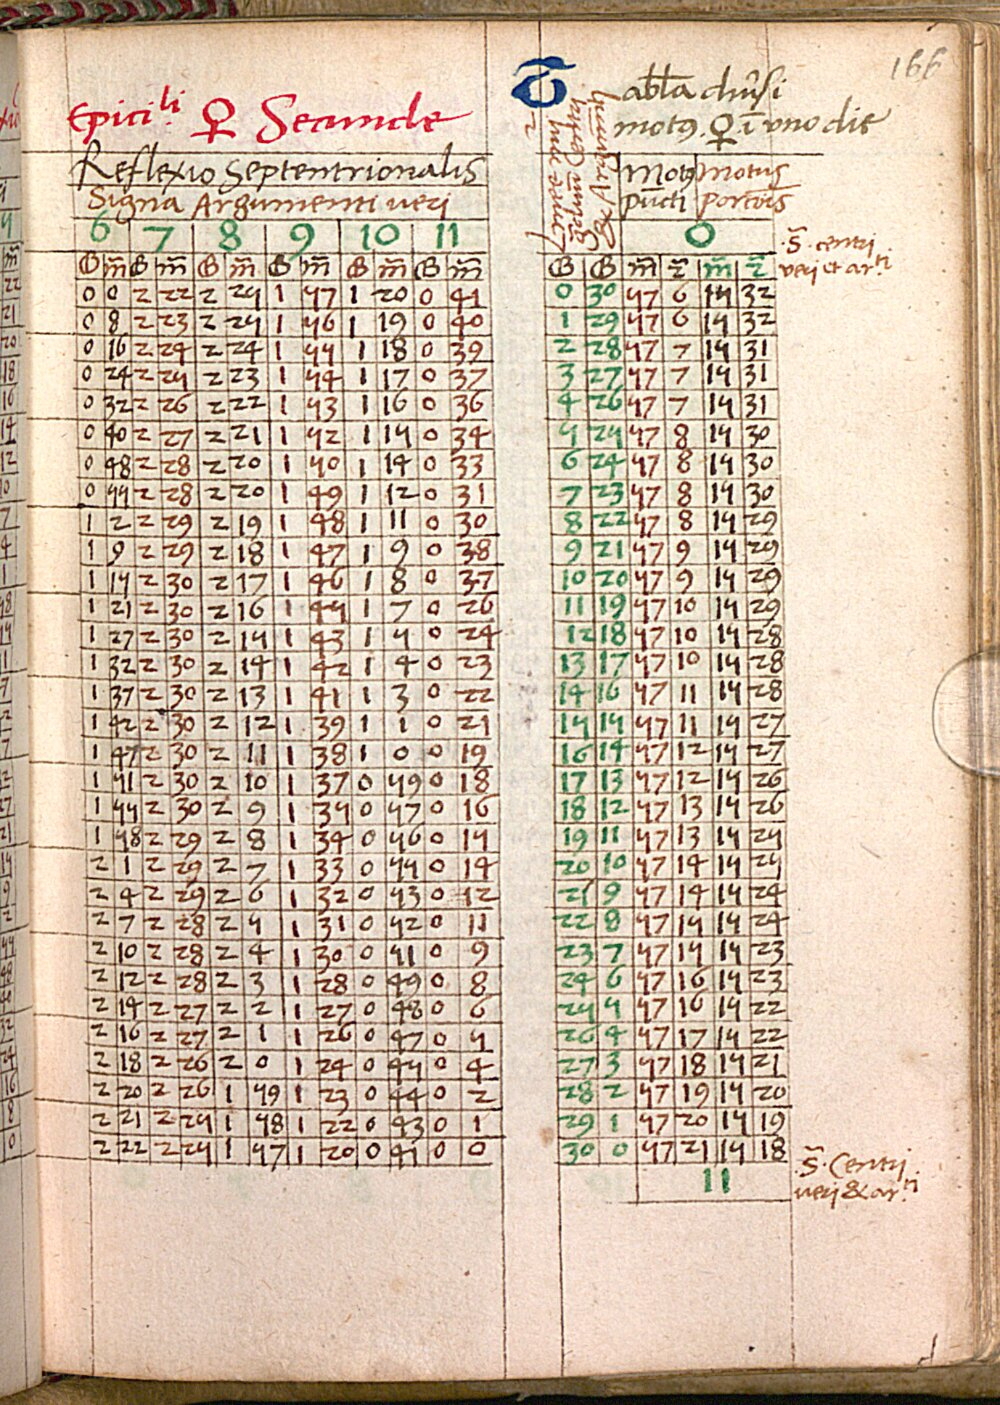 166
Epicicli ♀ Secunde
Reflexio Septentrionalis
Signa Argumenti veri
6 7 8 9 10 11
G m̄ G m̄ G m̄ G m̄ G m̄ G m̄
0 0 2 22 2 25 1 57 1 20 0 41
0 8 2 23 2 25 1 56 1 19 0 40
0 16 2 24 2 24 1 55 1 18 0 39
0 24 2 25 2 23 1 54 1 17 0 37
0 32 2 26 2 22 1 53 1 16 0 36
0 40 2 27 2 21 1 52 1 15 0 34
0 48 2 28 2 20 1 50 1 14 0 33
0 55 2 28 2 20 1 49 1 12 0 31
1 2 2 29 2 19 1 48 1 11 0 30
1 9 2 29 2 18 1 47 1 9 0 38
1 15 2 30 2 17 1 46 1 8 0 37
1 21 2 30 2 16 1 45 1 7 0 26
1 27 2 30 2 15 1 43 1 5 0 24
1 32 2 30 2 14 1 42 1 4 0 23
1 37 2 30 2 13 1 41 1 3 0 22
1 42 2 30 2 12 1 39 1 1 0 21
1 47 2 30 2 11 1 38 1 0 0 19
1 51 2 30 2 10 1 37 0 59 0 18
1 55 2 30 2 9 1 35 0 57 0 16
1 58 2 29 2 8 1 34 0 56 0 15
2 1 2 29 2 7 1 33 0 55 0 14
2 4 2 29 2 6 1 32 0 53 0 12
2 7 2 28 2 5 1 31 0 52 0 11
2 10 2 28 2 4 1 30 0 51 0 9
2 12 2 28 2 3 1 28 0 49 0 8
2 14 2 27 2 2 1 27 0 48 0 6
2 16 2 27 2 1 1 26 0 47 0 5
2 18 2 26 2 0 1 24 0 45 0 4
2 20 2 26 1 59 1 23 0 44 0 2
2 21 2 25 1 58 1 22 0 43 0 1
2 22 2 25 1 57 1 20 0 41 0 0
Tabla diuersi
motus ♀ ī vno die
Motus Motus
pūcti portōis
0
S̄. centri
veri et arti
G G m̄ 2̄ m̄ 2̄
0 30 57 6 15 32
1 29 57 6 15 32
2 28 57 7 15 31
3 27 57 7 15 31
4 26 57 7 15 31
5 25 57 8 15 30
6 24 57 8 15 30
7 23 57 8 15 30
8 22 57 8 15 29
9 21 57 9 15 29
10 20 57 9 15 29
11 19 57 10 15 29
12 18 57 10 15 28
13 17 57 10 15 28
14 16 57 11 15 28
15 15 57 11 15 27
16 14 57 12 15 27
17 13 57 12 15 26
18 12 57 13 15 26
19 11 57 13 15 25
20 10 57 14 15 25
21 9 57 14 15 24
22 8 57 15 15 24
23 7 57 15 15 23
24 6 57 16 15 23
25 5 57 16 15 22
26 4 57 17 15 22
27 3 57 18 15 21
28 2 57 19 15 20
29 1 57 20 15 19
30 0 57 21 15 18
11
S̄. Centri
veri & arti